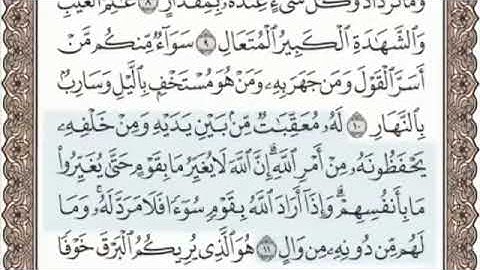 وَمَا تَزْدَادُ وَكُلُّ شَيْءٍ عِندَهُۥ بِمِقْدَارٍ ٨ عَٰلِمُ ٱلْغَيْبِ
وَٱلشَّهَٰدَةِ ٱلْكَبِيرُ ٱلْمُتَعَالِ ٩ سَوَآءٌ مِّنكُم مَّنْ
أَسَرَّ ٱلْقَوْلَ وَمَن جَهَرَ بِهِۦ وَمَنْ هُوَ مُسْتَخْفٍۭ بِٱلَّيْلِ وَسَارِبٌۢ
بِٱلنَّهَارِ ١٠ لَهُۥ مُعَقِّبَٰتٌ مِّنۢ بَيْنِ يَدَيْهِ وَمِنْ خَلْفِهِۦ
يَحْفَظُونَهُۥ مِنْ أَمْرِ ٱللَّهِۗ إِنَّ ٱللَّهَ لَا يُغَيِّرُ مَا بِقَوْمٍ حَتَّىٰ يُغَيِّرُوا۟
مَا بِأَنفُسِهِمْۗ وَإِذَآ أَرَادَ ٱللَّهُ بِقَوْمٍ سُوٓءًا فَلَا مَرَدَّ لَهُۥۚ وَمَا
لَهُم مِّن دُونِهِۦ مِن وَالٍ ١١ هُوَ ٱلَّذِى يُرِيكُمُ ٱلْبَرْقَ خَوْفًا